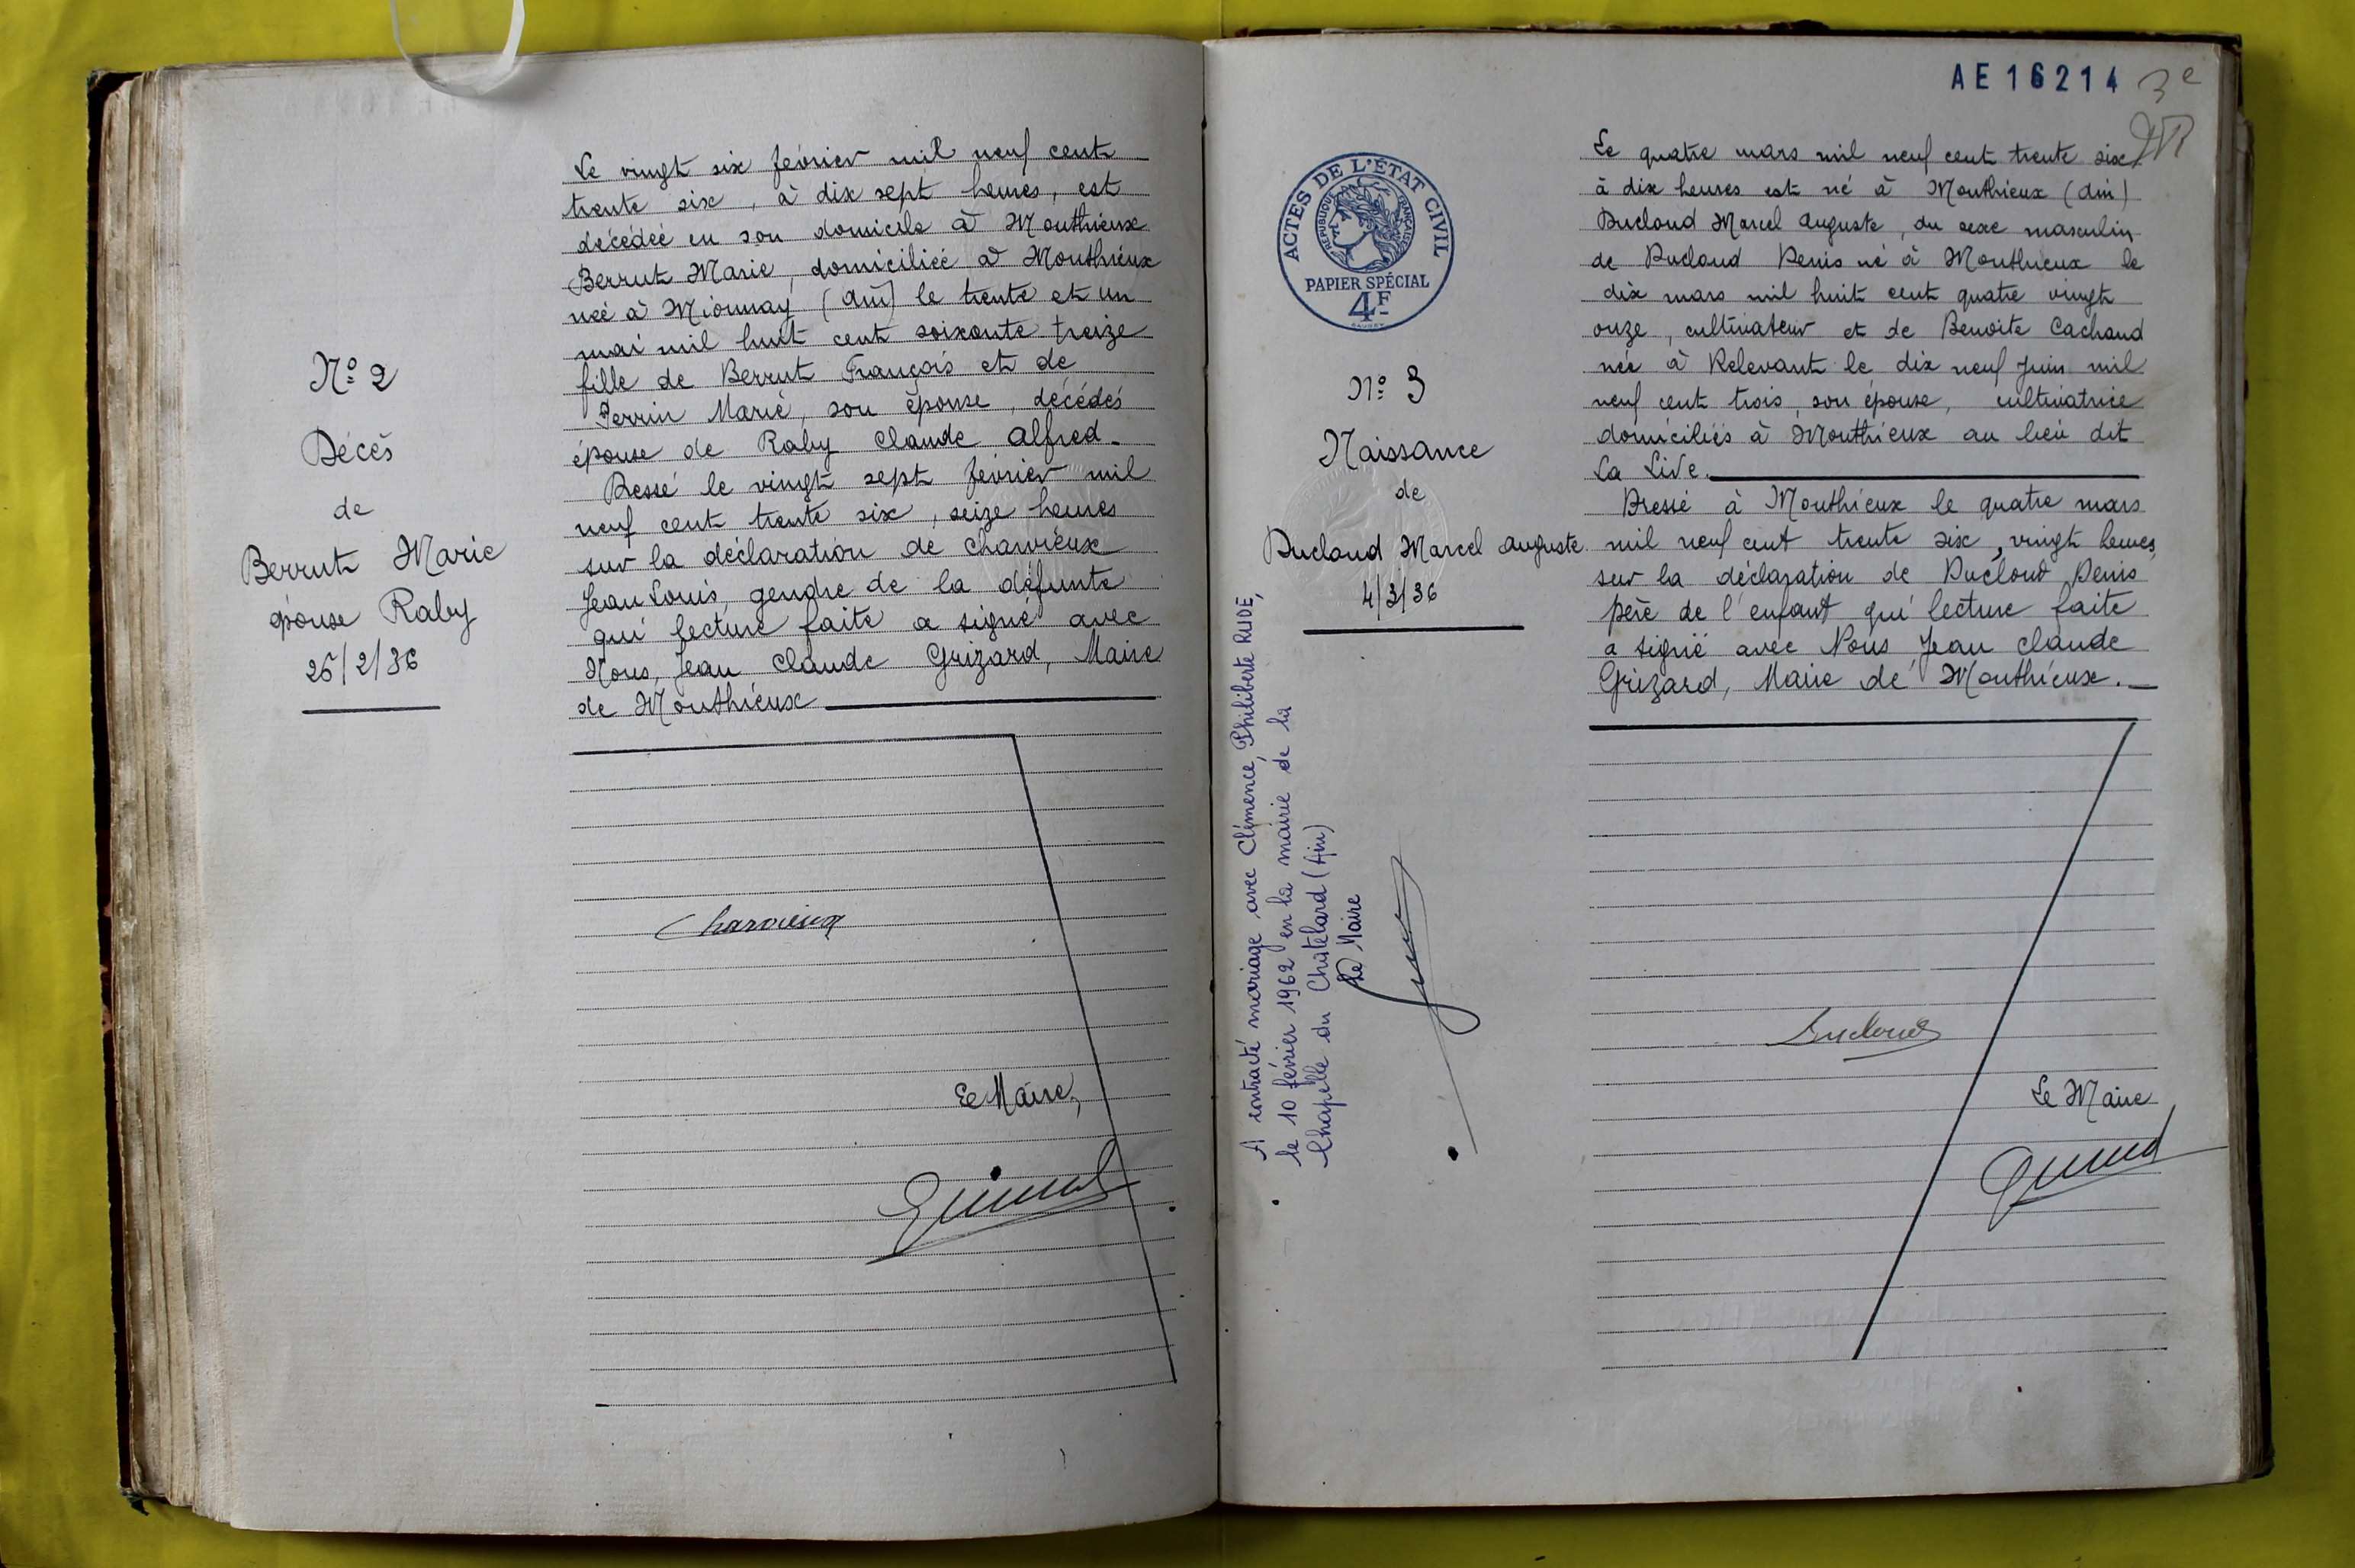 Nº 2
Décès
de
Berrut Marie
épouse Raby
26/2/36
Le vingt six février mil neuf cent
trente six, à dix sept heures, est
décédée en son domicile à Monthieux
Berrut Marie, domiciliée à Monthieux
née à Mionnay (Ain) le trente et un
mai mil huit cent soixante treize
fille de Berrut François et de
Perrin Marie, son épouse, décédés
épouse de Raby Claude Alfred.
Dressé le vingt sept février mil
neuf cent trente six, seize heures
sur la déclaration de Charvieux
Jean Louis, gendre de la défunte
qui lecture faite a signé avec
Nous, Jean Claude Grizard, Maire
de Monthieux
Charvieux
Le Maire,
AE16214 3e
ACTES DE L'ÉTAT CIVIL
RÉPUBLIQUE FRANÇAISE
PAPIER SPÉCIAL
4F
Nº 3
Naissance
de
Ducloud Marcel Auguste
4/3/36
A contracté mariage avec Clémence, Philiberte RUDE,
le 10 février 1962 en la mairie de la
Chapelle du Chatelard (Ain)
Le Maire
Le quatre mars mil neuf cent trente six
à dix heures est né à Monthieux (Ain)
Ducloud Marcel Auguste, du sexe masculin
de Ducloud Denis né à Monthieux le
dix mars mil huit cent quatre vingt
onze, cultivateur et de Benoite Cachaud
née à Relevant le dix neuf Juin mil
neuf cent trois, son épouse, cultivatrice
domiciliés à Monthieux au lieu dit
La Live.
Dressé à Monthieux le quatre mars
mil neuf cent trente six, vingt heures,
sur la déclaration de Ducloud Denis
père de l'enfant qui lecture faite
a signé avec Nous Jean Claude
Grizard, Maire de Monthieux.
Ducloud
Le Maire